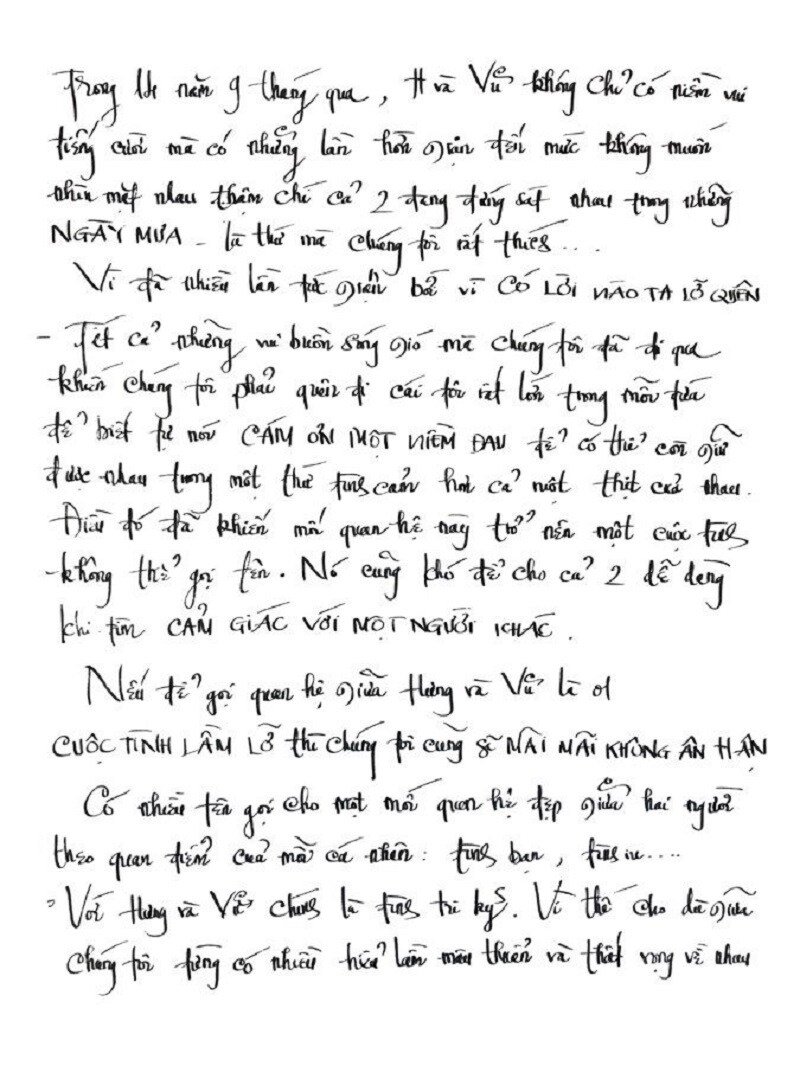 Trong 14 năm 9 tháng qua, H và Vũ không chỉ có niềm vui
tiếng cười mà có những lần hờn giận đến mức không muốn
nhìn mặt nhau thậm chí cả 2 đang đứng sát nhau trong những
NGÀY MƯA - là thứ mà chúng tôi rất thích...
Vì đã nhiều lần tức giận bởi vì CÓ LỜI NÀO TA LỠ QUÊN
- Tất cả những vui buồn sóng gió mà chúng tôi đã đi qua
khiến chúng tôi phải quên đi cái tôi rất lớn trong mỗi đứa
để biết tự nói CÁM ƠN MỘT NIỀM ĐAU để có thể còn giữ
được nhau trong một thứ tình cảm hơn cả ruột thịt của nhau.
Điều đó đã khiến mối quan hệ này trở nên một cuộc tình
không thể gọi tên. Nó cũng khó để cho cả 2 dễ dàng
khi tìm CẢM GIÁC VỚI MỘT NGƯỜI KHÁC.
Nếu để gọi quan hệ giữa Hưng và Vũ là 01
CUỘC TÌNH LẦM LỠ thì chúng tôi cũng sẽ MÃI MÃI KHÔNG ÂN HẬN
Có nhiều tên gọi cho một mối quan hệ đẹp giữa hai người
theo quan điểm của mỗi cá nhân: tình bạn, tình iu....
Với Hưng và Vũ chính là tình tri kỷ. Vì thế cho dù giữa
chúng tôi từng có nhiều hiểu lầm mâu thuẫn và thất vọng về nhau